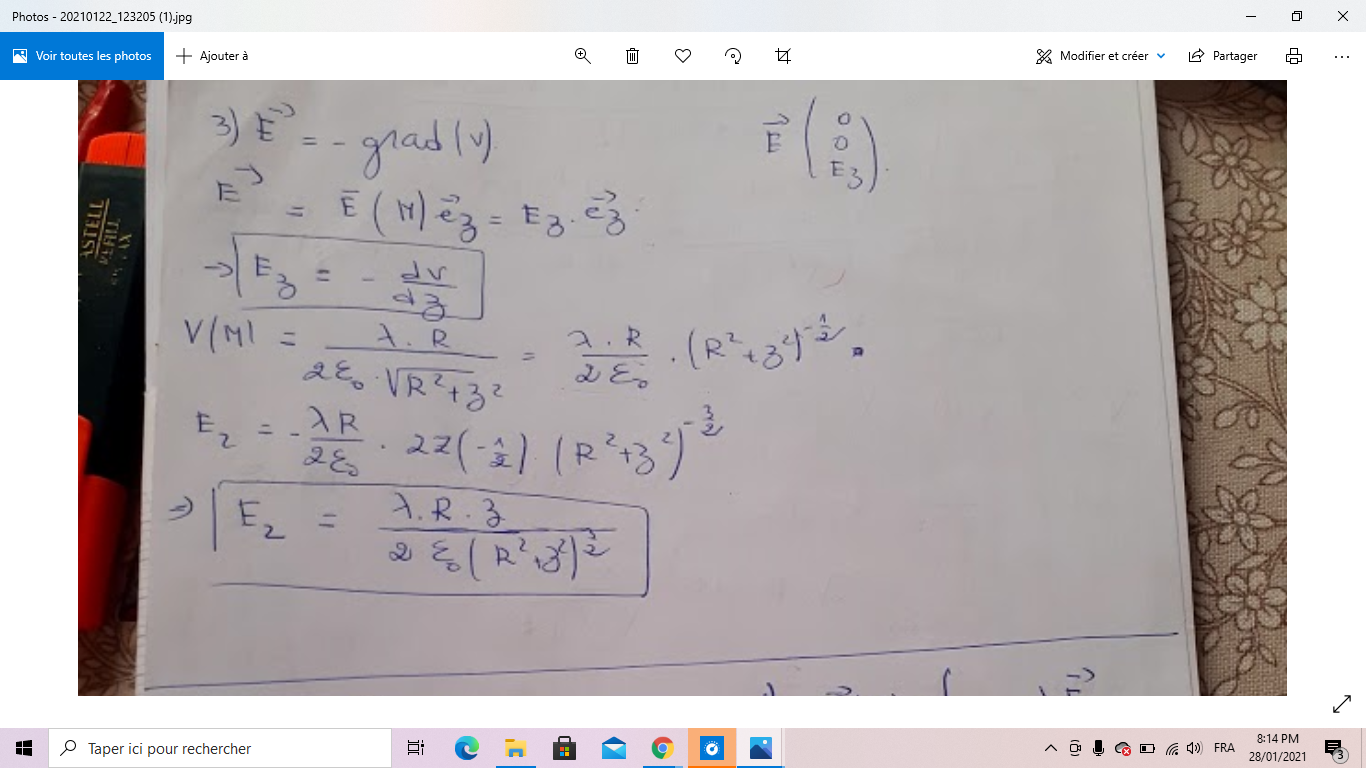 Photos - 20210122_123205 (1).jpg
Voir toutes les photos
Ajouter à
Modifier et créer
Partager
3) E⃗ = - grad(V)
E⃗ ( 0 0 Ez ).
E⃗ = E(M) e⃗z = Ez . e⃗z
→ Ez = - dV/dz
V(M) = λ.R / 2ε₀.√R²+z² = λ.R / 2ε₀ . (R²+z²)^-1/2.
E2 = - λR / 2ε₀ . 2z(-1/2) . (R²+z²)^-3/2
⇒ E2 = λ.R.z / 2ε₀(R²+z²)^3/2
ASTELL
REFILL
Taper ici pour rechercher
FRA
8:14 PM
28/01/2021
3